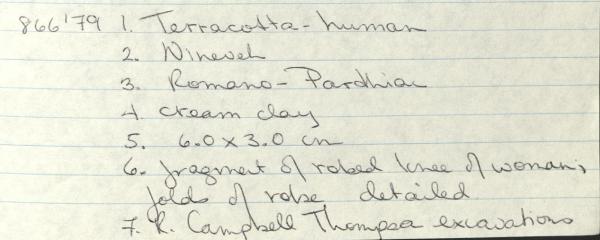 866'79 1. Terracotta - human
2. Nineveh
3. Romano-Pardhian
4. cream clay
5. 6.0 x 3.0 cm
6. fragment of robed knee of woman;
folds of robe detailed
7. R. Campbell Thompson excavations